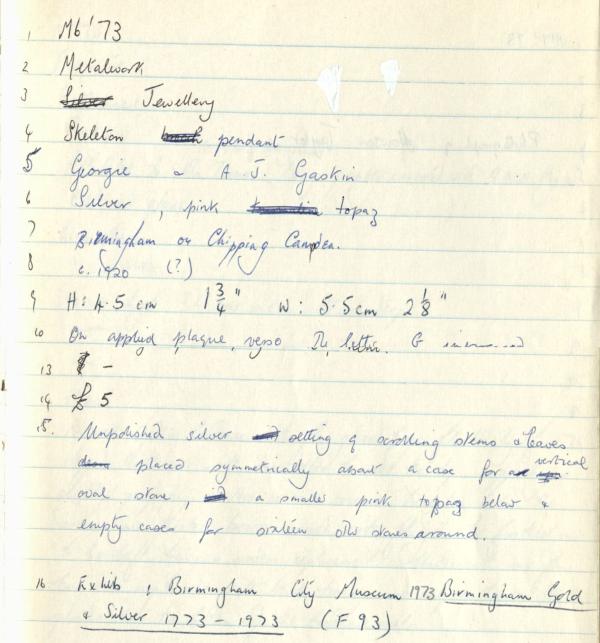 1 M6'73
2 Metalwork
3 Silver Jewellery
4 Skeleton pendant
5 Georgie & A. J. Gaskin
6 Silver, pink topaz
7 Birmingham or Chipping Campden.
8 c. 1920 (?)
9 H: 4.5 cm 1 3/4" W: 5.5cm 2 1/8"
10 On applied plaque, verso The letter G
13 -
14 £5
15. Unpolished silver setting of scrolling stems & leaves
placed symmetrically about a case for vertical
oval stone, a smaller pink topaz below &
empty cases for sixteen other stones around.
16 Exhib: Birmingham City Museum 1973 Birmingham Gold
& Silver 1773-1973 (F93)